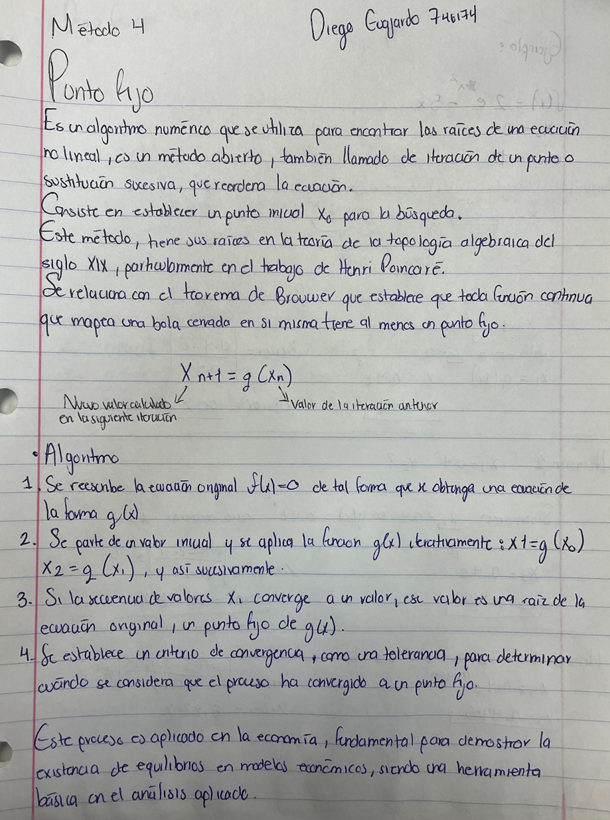 Método 4
Diego Guajardo 746174
Punto fijo
Es un algoritmo numérico que se utiliza para encontrar las raíces de una ecuación
no lineal, es un método abierto, también llamado de iteración de un punto o
sustitución sucesiva, que reordena la ecuación.
Consiste en establecer un punto inicial x₀ para la búsqueda.
Este método, tiene sus raíces en la teoría de la topología algebraica del
siglo XIX, particularmente en el trabajo de Henri Poincaré.
Se relaciona con el teorema de Brouwer que establece que toda función continua
que mapea una bola cerrada en si misma tiene al menos un punto fijo.
Xn+1 = g(xn)
Nuevo valor calculado
en la siguiente iteración
Valor de la iteración anterior
• Algoritmo
1. Se reescribe la ecuación original f(x)=0 de tal forma que se obtenga una ecuación de
la forma g(x)
2. Se parte de un valor inicial y se aplica la función g(x) iterativamente: x1=g(x₀)
x2=g(x₁), y así sucesivamente.
3. Si la secuencia de valores x, converge a un valor, ese valor es una raíz de la
ecuación original, un punto fijo de g(x).
4. Se establece un criterio de convergencia, como una tolerancia, para determinar
cuándo se considera que el proceso ha convergido a un punto fijo.
Este proceso es aplicado en la economía, fundamental para demostrar la
existencia de equilibrios en modelos económicos, siendo una herramienta
básica en el análisis aplicado.